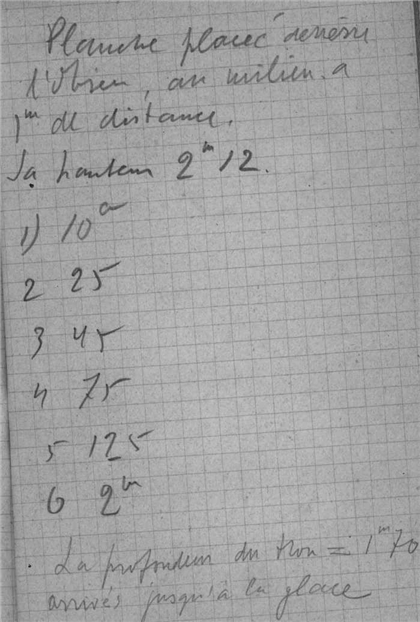 Planche placée derrière
l'obien, au milieu a
1m de distance.
Sa hauteur 2m 12.
1) 10c
2 25
3 45
4 75
5 125
6 2m
La profondeur du trou = 1m70
arrivés jusqu'à la glace